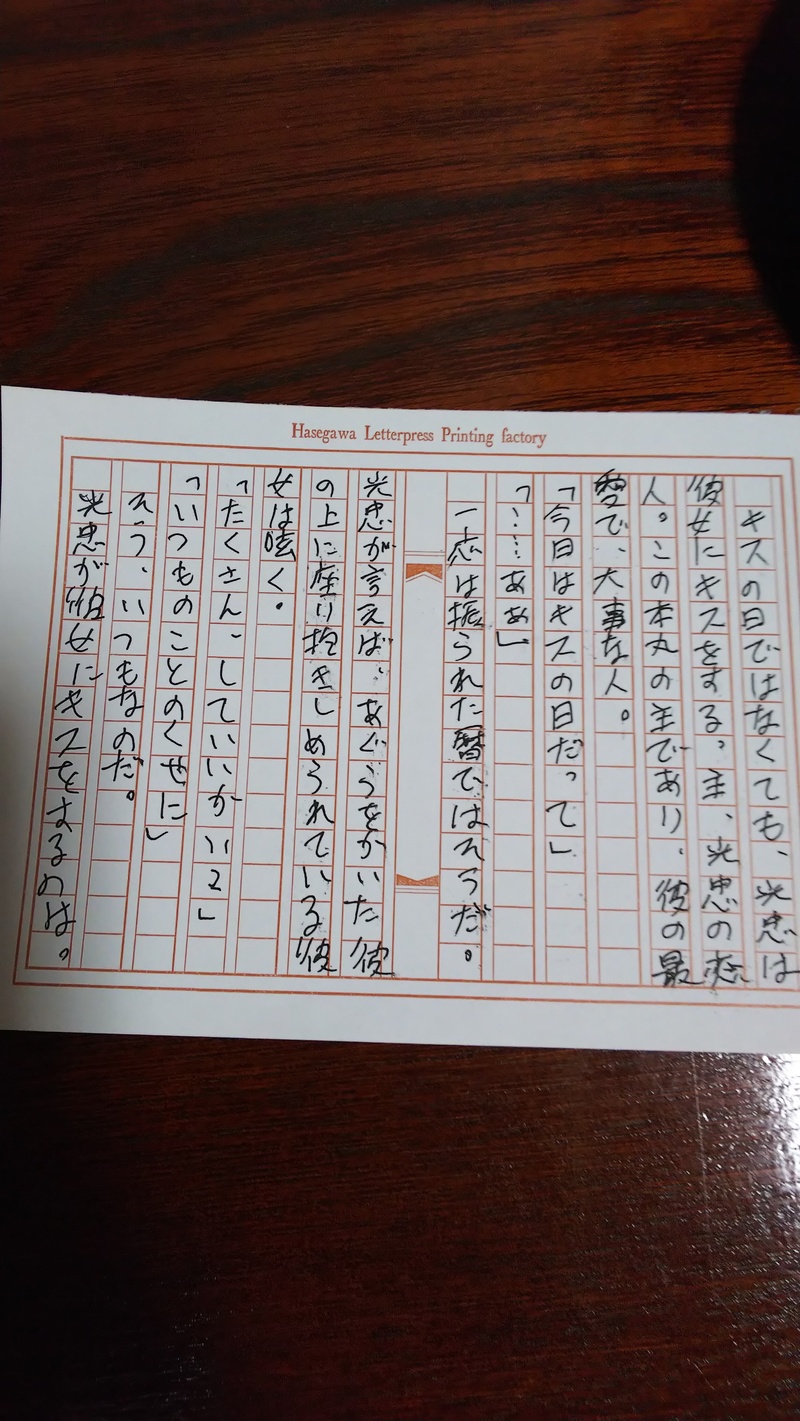 Hasegawa Letterpress Printing factory
キスの日ではなくても、光忠は
彼女にキスをする。主、光忠の恋
人。この本丸の主であり、彼の最
愛で、大事な人。
「今日はキスの日だって」
「……ああ」
一応は振られた暦ではそうだ。
光忠が言えば、あぐらをかいた彼
の上に座り抱きしめられている彼
女は呟く。
「たくさん、していいかい？」
「いつものことのくせに」
そう、いつもなのだ。
光忠が彼女にキスをするのは。